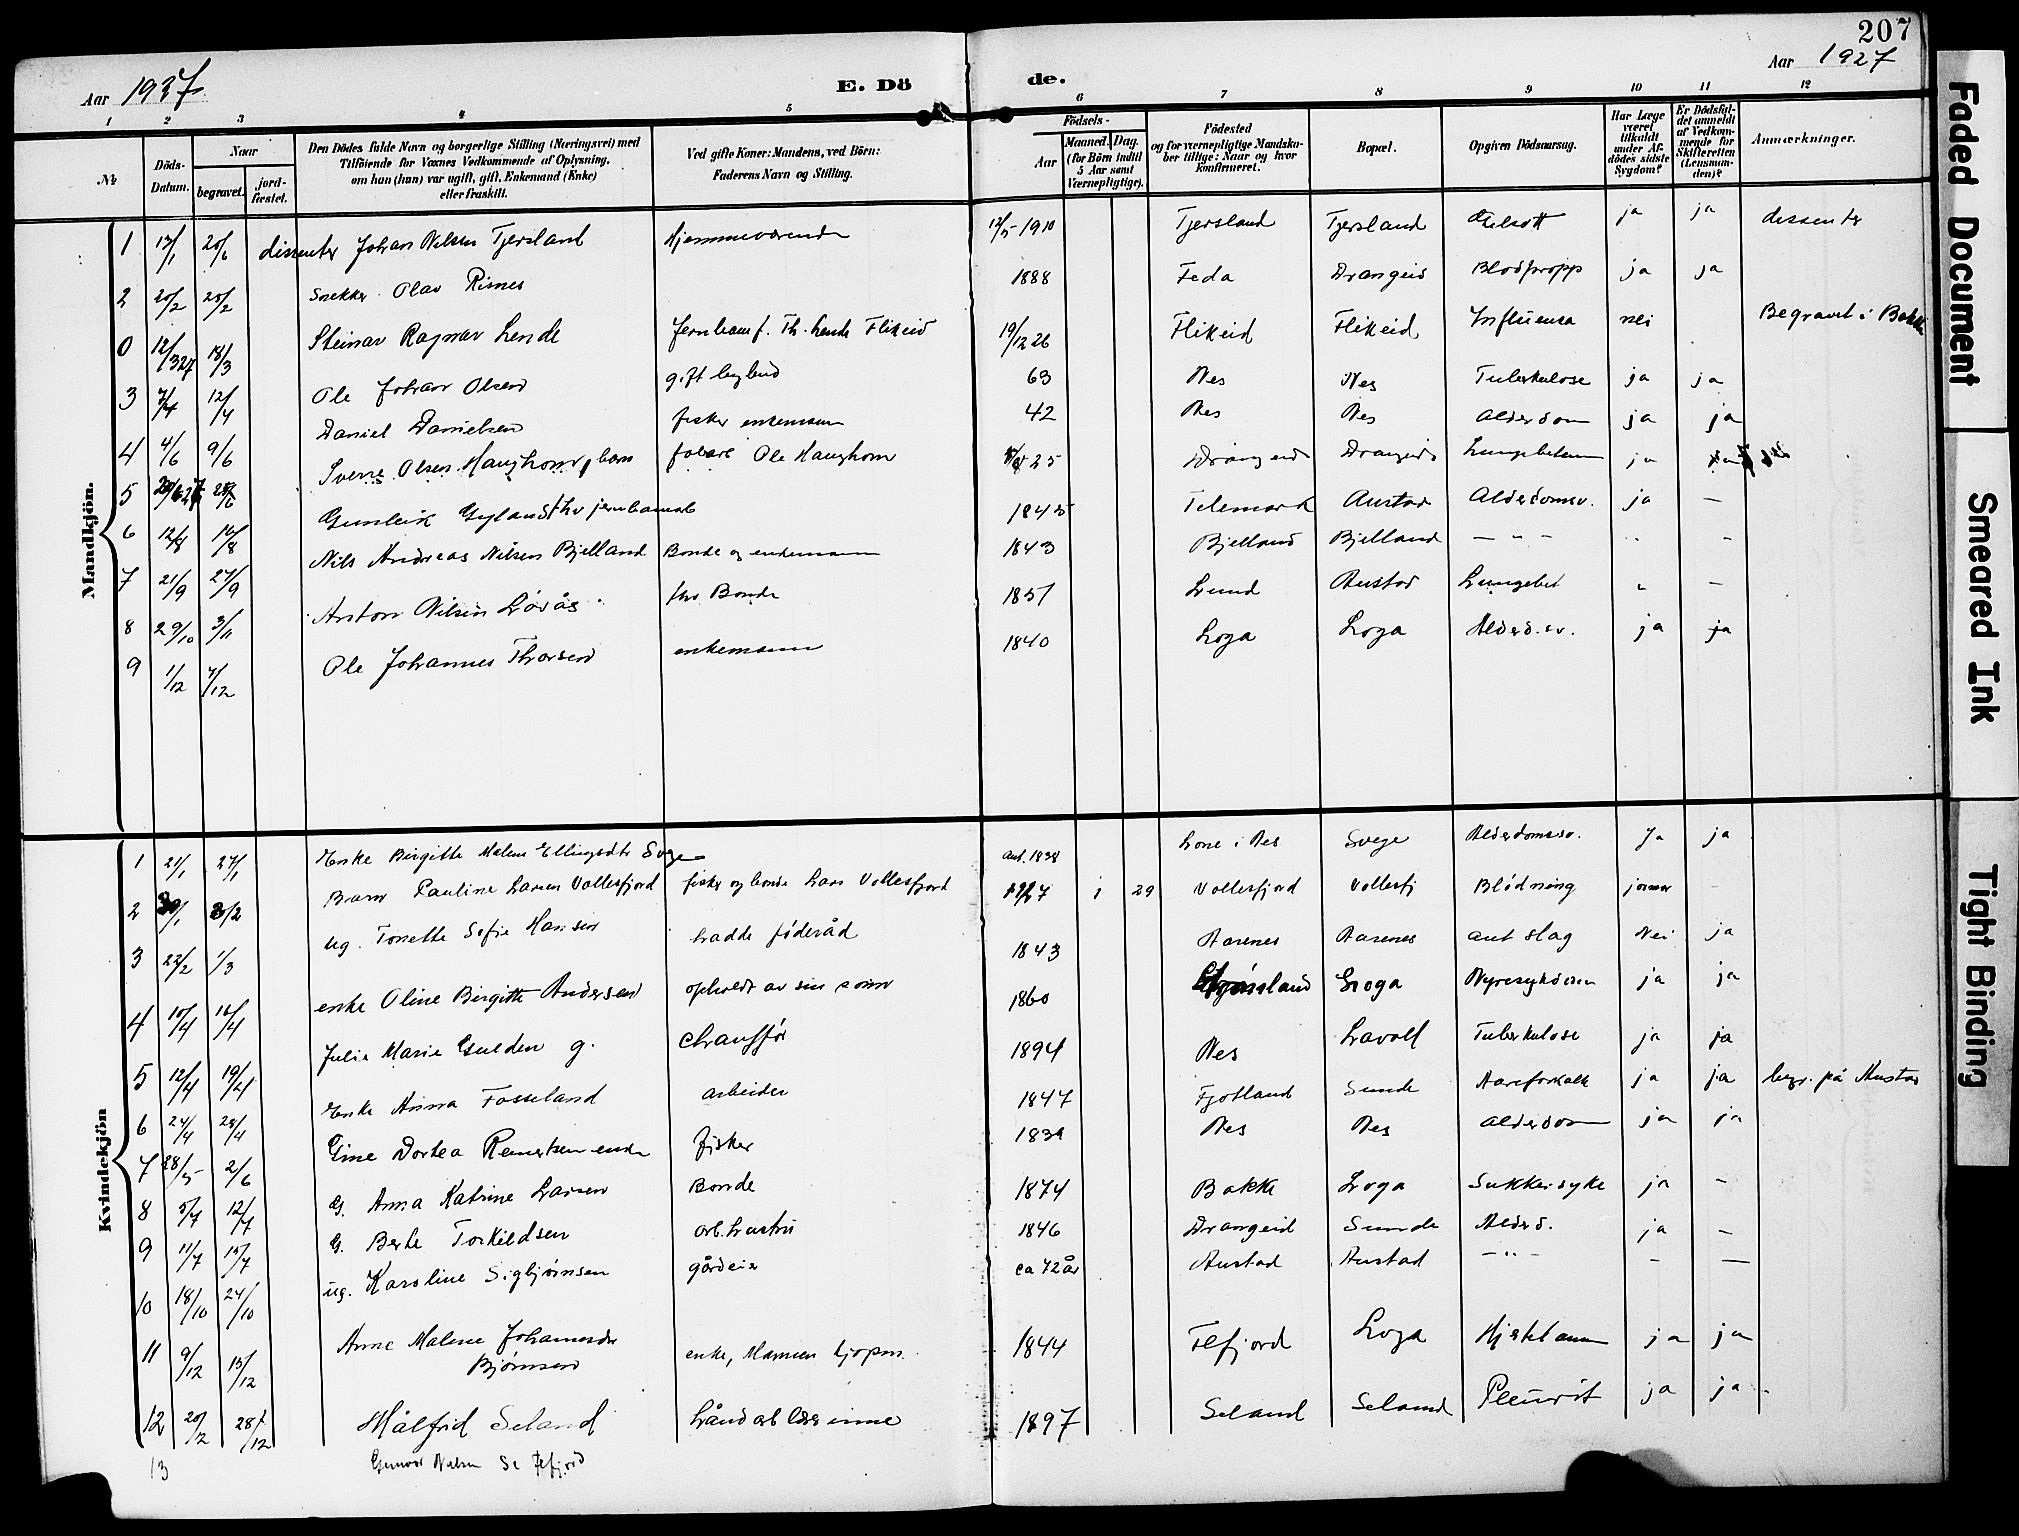 207
Aar 1927
E. Dö de.
Aar 1927
1 2 3 4 5 6 7 8 9 10 11 12
№
Döds-Datum.
Naar
begravet.
jord-fæstet.
Den Dödes fulde Navn og borgerlige Stilling (Næringsvei) med
Tilföiende for Voxnes Vedkommende af Oplysning,
om han (hun) var ugift, gift, Enkemand (Enke)
eller fraskilt.
Ved gifte Koner: Mandens, ved Börn:
Faderens Navn og Stilling.
Födsels-
Aar
Maaned. Dag.
(for Börn indtil
5 Aar samt
Værnepligtige).
Födested
og for værnepligtige Mandska-
ber tillige: Naar og hvor
konfirmeret.
Bopæl.
Opgiven Dödsaarsag.
Har Læge
været
tilkaldt
under Af-
dödes sidste
Sygdom?
Er Dödsfal-
det anmeldt
af Vedkom-
mende for
Skifteretten
(Lensman-
den)?
Anmærkninger.
Mandkjön.
1 13/1 20/6 dissenter Johan Nilsen Tjersland Hjemmeværende 12/5-1910 Tjersland Tjersland ja ja dissenter
2 20/2 25/2 Snekker Olav Risnes 1888 Feda Drangeid Blodpropp ja ja
0 12/3 27 18/3 Steinar Ragnar Lende Jernbanef. Th. Lende Flikeid 19/12 26 Flikeid Flikeid Influensa nei Begravet i Bakke
3 7/4 12/4 Ole Johan Olsen gift 63 Nes Nes Tuberkulose ja ja
4 4/6 9/6 Daniel Danielsen fisker enkemann 42 Nes Nes Alderdom ja ja
5 Sverre Olsen Haughom, barn Ole Haughom 25 Drangeid Drangeid Lungebetenn ja
6 12/8 16/8 Gunleik Gyland fhv jernbanearb 1845 Telemark Austad Alderdomsv. ja —
7 21/9 27/9 Nils Andreas Nilsen Bjelland Bonde og enkemann 1843 Bjelland Bjelland — " — " -
8 29/10 3/11 Anton Nilsen Løvås fhv Bonde 1851 Lund Austad Lungebet " —
9 1/12 7/12 Ole Johannes Thorsen enkemann 1840 Loga Loga Alderd.sv. ja ja
Kvindekjön
1 21/1 27/1 Enke Birgitte Malene Ellingsdtr Svege ant. 1838 Lone i Nes Svege Alderdomssv. Ja ja
2 30/1 3/2 Barn Pauline Larsen Vollesfjord fisker og bonde Lars Vollesfjord 1927 1 29 Vollesfjord Vollesfj Blødning jormor -
3 22/2 1/3 ug. Tonette Sofie Hansen hadde føderåd 1843 Aarenes Aarenes ant slag Nei ja
4 10/4 16/4 enke Oline Birgitte Andersen opholdt av sin sønn 1860 Loga Nyresykdom ja ja
5 12/4 19/4 Julie Marie Gulden g. Chauffør 1894 Nes Lavoll Tuberkulose ja ja
6 24/4 28/4 Enke Anna Fosseland arbeider 1847 Fjotland Sunde Aareforkalk ja ja begr. på Austad
7 28/5 2/6 Gine Dortea Reinertsen enke fisker 1839 Nes Nes Alderdom ja ja
8 5/7 12/7 G. Anna Katrine Larsen Bonde 1874 Bakke Loga Sukkersyke ja -
9 11/7 15/7 G. Berte Torkildsen arb. hustru 1846 Drangeid Sunde Alderd. ja —
10 18/10 24/10 ug. Karoline Sigbjørnsen gårdeier ca 72 år Austad Austad — " — — —
11 9/12 15/12 Anne Malene Johannesdtr
Bjørnsen enke, Mannen kjøpm. 1844 Flfjord Loga Hjertlam ja ja
12 20/2 28/12 Målfrid Seland håndarb lærerinne 1897 Seland Seland Pleurit ja ja
13 Gunvor Nilsen
Faded Document
Smeared Ink
Tight Binding